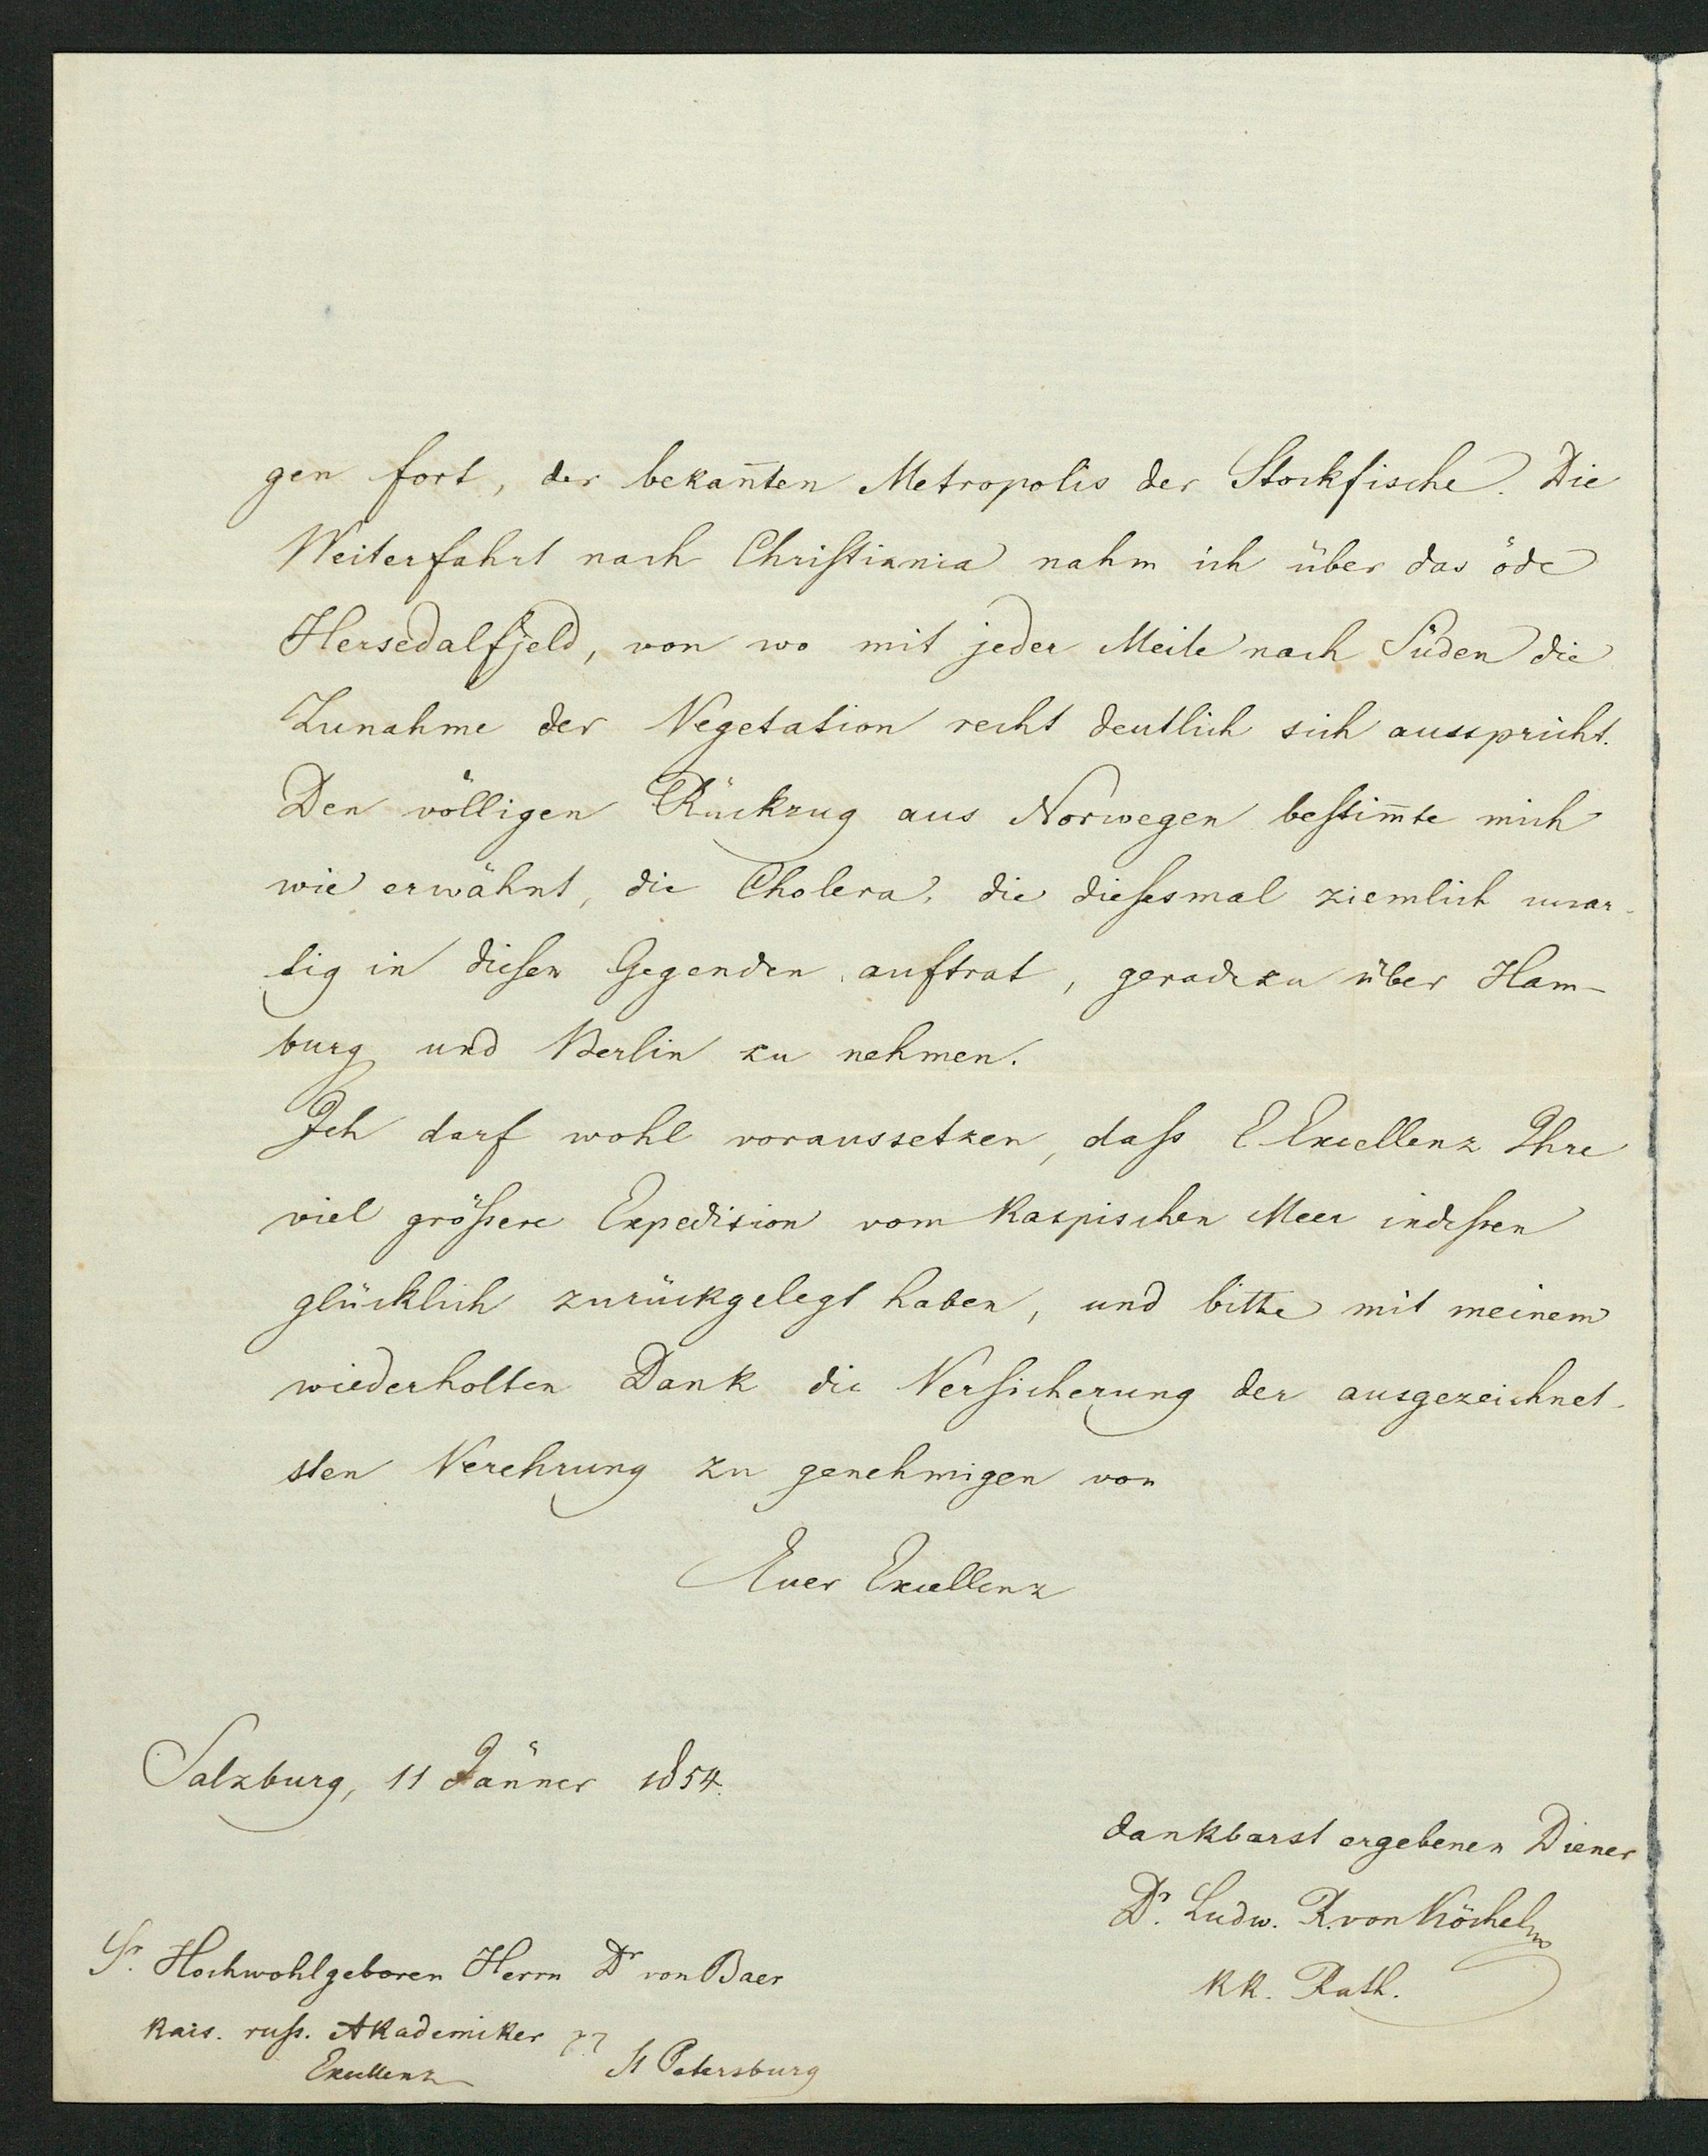 gen fort, der bekan̄ten Metropolis der Stockfische. Die
Weiterfahrt nach Christiania nahm ich über das öde
Hersedalfjeld, von wo mit jeder Meile nach Süden die
Zunahme der Vegetation recht deutlich sich ausspricht.
Den völligen Rückzug aus Norwegen bestim̄te mich
wie erwähnt, die Cholera, die diesesmal ziemlich unar-
tig in diesen Gegenden auftrat, geradezu über Ham-
burg und Berlin zu nehmen.
Ich darf wohl voraussetzen, daß E Excellenz Ihre
viel größere Expedizion vom Kaspischen Meer indeßen
glücklich zurückgelegt haben, und bitte mit meinem
wiederholten Dank die Versicherung der ausgezeichnet-
sten Verehrung zu genehmigen von
Euer Excellenz
Salzburg, 11 Jänner 1854.
dankbarst ergebenen Diener
Dr. Ludw. R. von Köchel
KK. Rath.
Sr. Hochwohlgeboren Herrn Dr von Baer
Kais. ruß. Akademiker
Excellenz St Petersburg